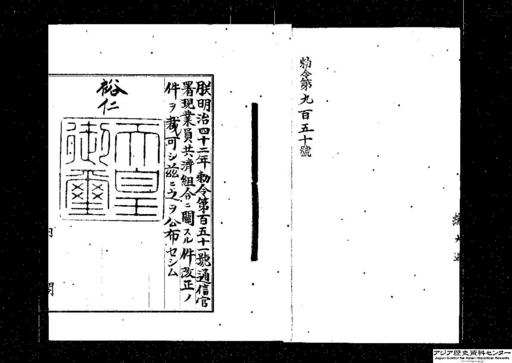 勅令第九百五十號
朕明治四十二年勅令第百五十一號通信官
署現業員共濟組合ニ關スル件改正ノ
件ヲ裁可シ茲ニ之ヲ公布セシム
裕仁
天皇
御璽
内閣
アジア歴史資料センター
Japan Center for Asian Historical Records